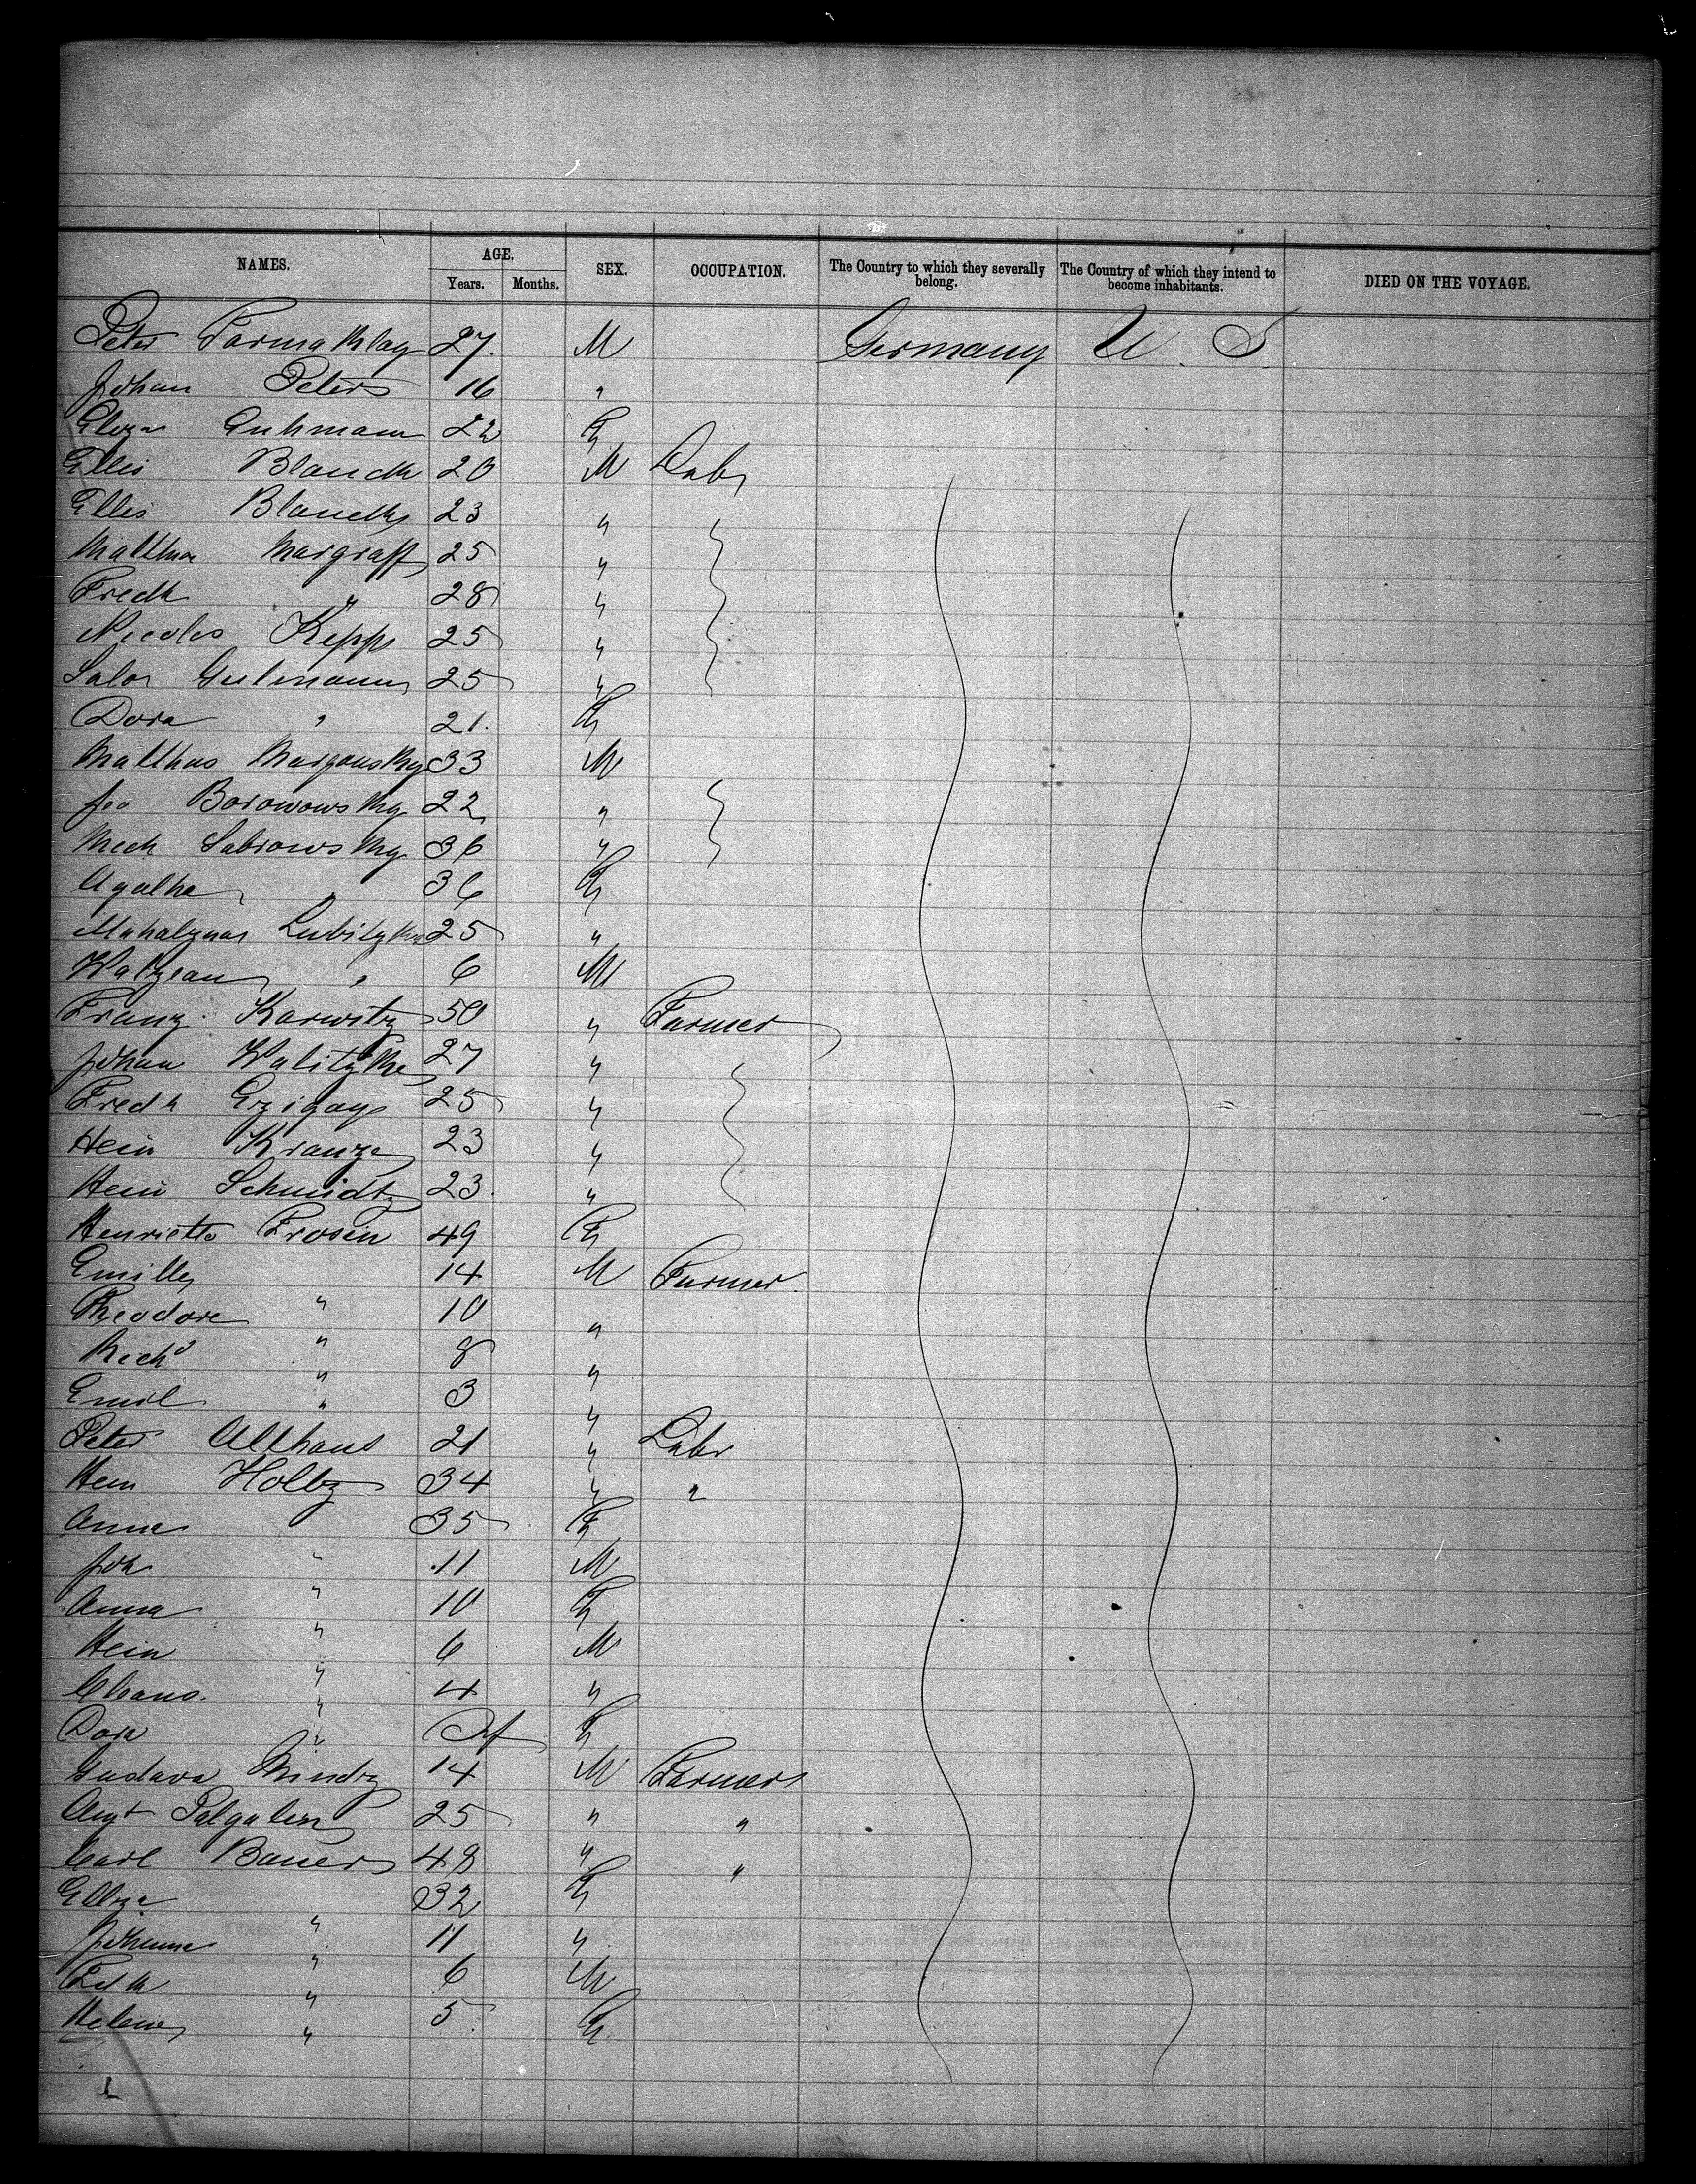 NAMES. AGE. Years. Months. SEX. OCCUPATION. The Country to which they severally belong. The Country of which they intend to become inhabitants. DIED ON THE VOYAGE.
Peter 27. M Germany U. S
Johan Peters 16 "
Eliza Guhmann 22 F
Ellis Blanck 20 M Labr
Ellis 23 "
Matthew Margraff 25 "
Fredk " 28 "
Nicolos Kepps 25 "
Salor Gutmann 25 "
Dora " 21. F
Matthus 33 M
Jos Borowowsky 22 "
Mich Sabrowsky 36 "
Agatha " 36 F
25 "
" 6 M
Franz Karwitz 50 " Farmer
Johan Walitzke 27 "
Fredk 25 "
Hein Kranze 23 "
Hein Schmidtz 23. "
Henriette Frosin 49 F
Emille 14 M Farmer
Theodore " 10 "
Richd " 8 "
Emil " 3 "
Peter Althaus 21 " Labr
Hein Holtz 34 " "
Anna 35 F
Joh " 11 M
Anna " 10 F
Hein " 6 M
Claus " 4 "
Dora " Inf F
Gustava 14 M Farmer
Augt 25 " "
Carl Bauer 48 " "
Eliza " 32 F
Johanna " 11 "
Fredk " 6 M
Helene " 5 F